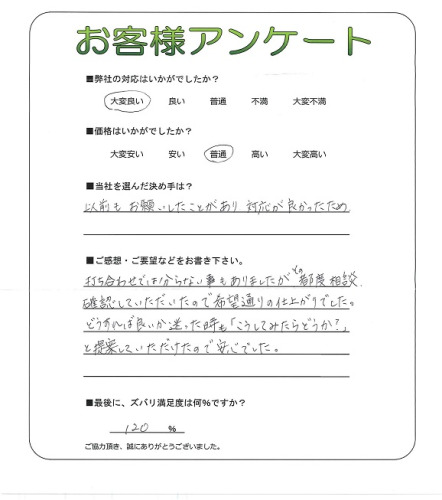 お客様アンケート
■弊社の対応はいかがでしたか？
大変良い 良い 普通 不満 大変不満
■価格はいかがでしたか？
大変安い 安い 普通 高い 大変高い
■当社を選んだ決め手は？
以前もお願いしたことがあり 対応が良かったため
■ご感想・ご要望などをお書き下さい。
打ち合わせでは分からない事もありましたが その都度相談
確認していただいたので希望通りの仕上がりでした。
どうすれば良いか迷った時も「こうしてみたらどうか？」
と提案していただけたので安心でした。
■最後に、ズバリ満足度は何％ですか？
120 ％
ご協力頂き、誠にありがとうございました。